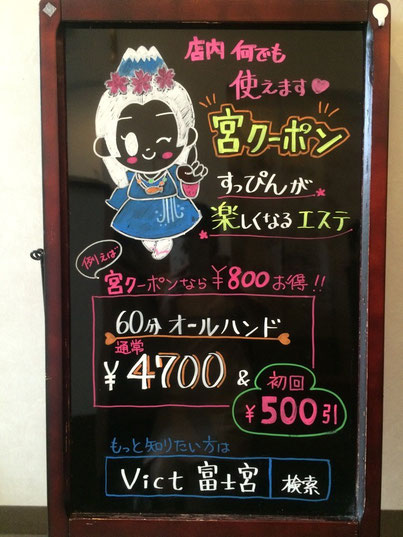 店内 何でも
使えます
宮クーポン
すっぴんが
楽しくなるエステ
例えば
宮クーポンなら¥800お得!!
60分 オールハンド
通常
¥4700 &
初回
¥500引
もっと知りたい方は
Vict 富士宮 検索